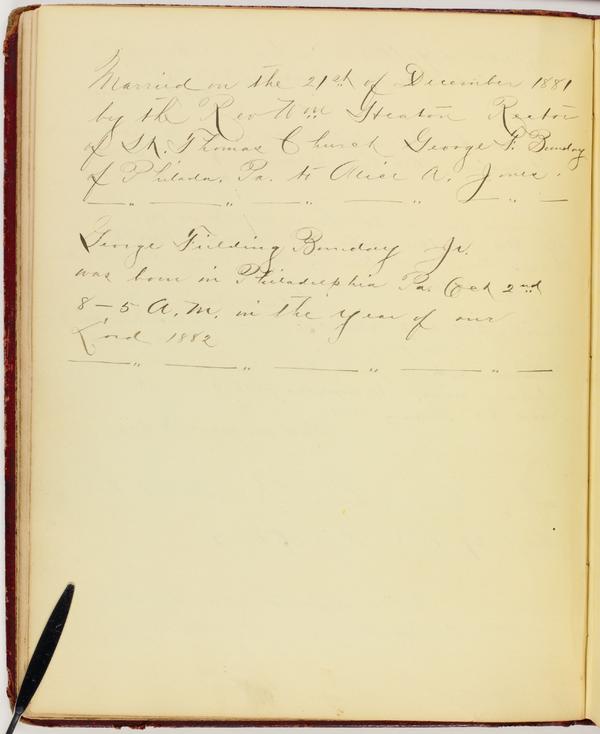 Married on the 21st of December 1881
by the Rev Wm Heaton Rector
of St. Thomas Church George F. Bunday
of Philada. Pa. to Alice A. Jones.
George Fielding Bunday Jr.
was born in Philadelphia Pa. Oct 2nd
8-5 A.M. in the year of our
Lord 1882